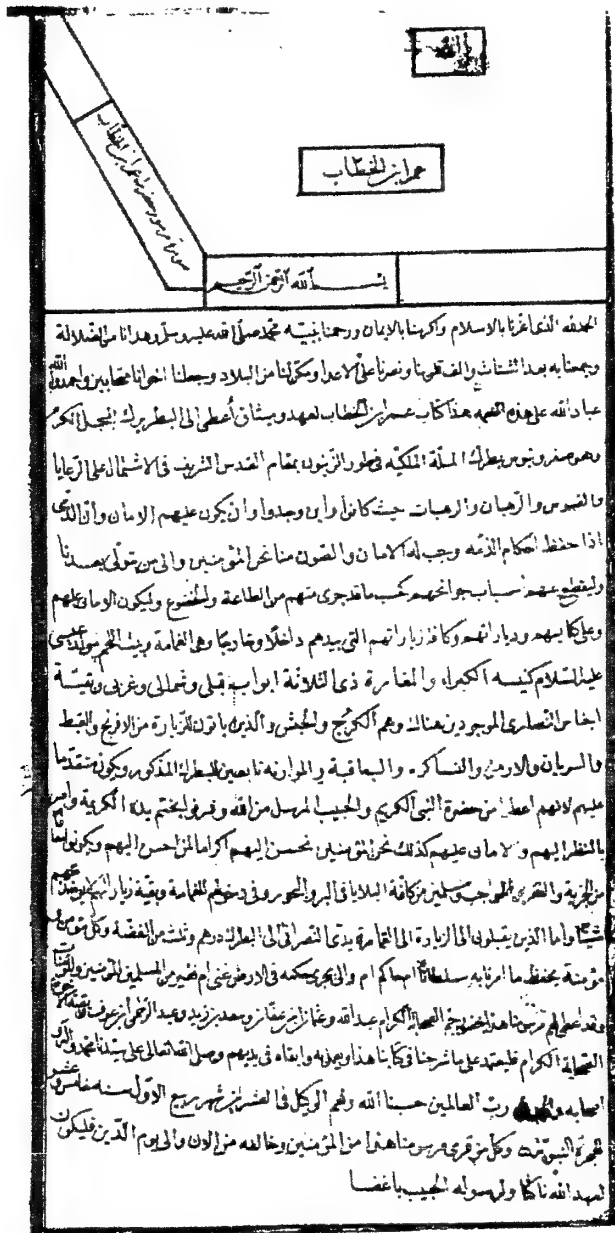 عمر ابن الخطاب
صورة مرسوم حضرة عمر ابن الخطاب
بسم الله الرحمن الرحيم
الحمد لله الذى اعزنا بالاسلام واكرمنا بالايمان ورحمنا بنبيه محمد صلى الله عليه وسلم وهدانا من الضلالة
وجمعنا به بعد الشتات والف قلوبنا ونصرنا على الاعدا ومكن لنا من البلاد وجعلنا اخوانا متحابين واحمدوا الله
عباد الله على هذه النعمه هذا كتاب عمر ابن الخطاب لعهد وميثاق أعطى الى البطريرك المبجل المكرم
وهو صفرونيوس بطرك الملة الملكيه فى طور الزيتون بمقام القدس الشريف فى الاشتمال على الرعايا
والقسوس والرهبان والراهبات حيث كانوا واين وجدوا وان يكون عليهم الامان وان الذمى
اذا حفظ احكام الذمه وجب له الامان والصون منا نحن المؤمنين والى من يتولى بعدنا
وليقطع عنهم اسباب جوانحهم كحسب ما قد جرى منهم من الطاعة والخضوع وليكون الامان عليهم
وعلى كنايسهم وديارتهم وكافة زياراتهم التى بيدهم داخلا وخارجا وهى القمامة وبيت لحم مولد عيسى
عليه السلام كنيسه الكبراء والمغارة ذى الثلاثة ابواب قبلى وشمالى وغربى وبقية
اجناس النصارى الموجودين هناك وهم الكرج والحبش والذين ياتون للزيارة من الافرنج والقبط
والسريان والارمن والنساطره واليعاقبة والموارنه تابعين للبطرك المذكور ويكون متقدما
عليهم لانهم اعطوا من حضرة النبى الكريم والحبيب المرسل من الله وشرفوا بختم يده الكريمة وامر
بالنظر اليهم والامان عليهم كذلك نحن المؤمنين نحسن اليهم اكراما لمن احسن اليهم ويكونوا معافا
من الجزية والغفر والمواجب ومسلمين من كافة البلايا فى البر والبحور وفى دخولهم للقمامة وبقية زياراتهم لا يوخذ منهم
شيا واما الذين يقبلون الى الزيارة الى القمامة يودى النصرانى الى البطرك درهم وثلث من الفضة وكل مؤمن و
مؤمنة يحفظ ما امرنا به سلطانا ام حاكم ام والى يجرى حكمه فى الارض غنى ام فقير من المسلمين المؤمنين والمؤمنات
وقد اعطى لهم مرسومنا هذا بحضور جم الصحابة الكرام عبد الله وعثمان ابن عفان وسعد بن زيد وعبد الرحمن ابن عوف وبقية الاخوة
الصحابة الكرام فليعتمد على ما شرحنا فى كتابنا هذا ويعمل به وابقاه فى يدهم وصلى الله تعالى على سيدنا محمد واله و
اصحابه والحمد لله رب العالمين حسبنا الله ونعم الوكيل فى العشرين من شهر ربيع الاول سنه خامس وعشر
للهجرة النبويه وكل من قرى مرسومنا هذا من المؤمنين وخالفه من الان والى يوم الدين فليكون
لعهد الله ناكثا ولرسوله الحبيب باغضا